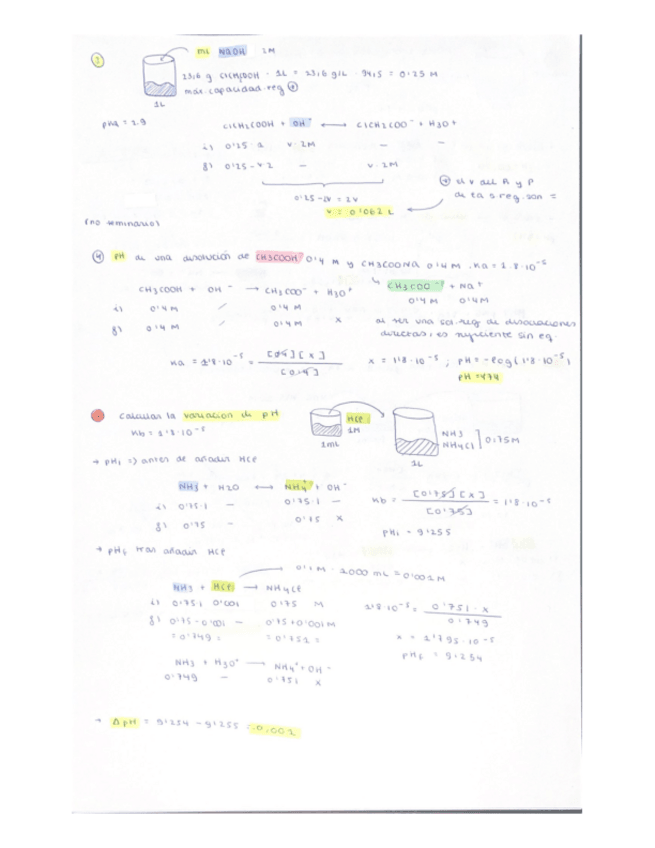 mL NaOH 2M
23,6 g ClCH2COOH · 1L = 23,6 g/L · 94,5 = 0'25 M
máx. capacidad. reg
1L
ClCH2COOH + OH⁻ ⟷ ClCH2COO⁻ + H3O+
i) 0'25 · 1 V · 2M — —
f) 0'25 - V 2 — V · 2M
0'25 - 2V = 2V
V = 0'062 L
(no seminario)
④ PH de una disolución de CH3COOH 0'4 M y CH3COONa 0'4 M. Ka = 1'8·10⁻⁵
CH3COOH + OH⁻ → CH3COO⁻ + H3O⁺
CH3COO⁻ + Na⁺
i) 0'4 M / 0'4 M
0'4 M 0'4 M
f) 0'4 M / 0'4 M x
al ser una sol. reg de disociaciones
directas, es suficiente sin eq.
Ka = 1'8·10⁻⁵ = [0'4][x] / [0'4] x = 1'8·10⁻⁵ ; PH = -log(1'8·10⁻⁵);
PH = 4'74
Calcular la variación de pH
Kb = 1'8·10⁻⁵
HCl
1M
1mL
NH3
NH4Cl
0'75M
1L
→ pH, => antes de añadir HCl
NH3 + H2O ⟷ NH4⁺ + OH⁻
i) 0'75·1 — 0'75·1 —
f) 0'75 — 0'75 x
Kb = [0'75][x] / [0'75] = 1'8·10⁻⁵
pH, = 9'255
→ pHf tras añadir HCl
NH3 + HCl → NH4Cl
i) 0'75·1 0'001 0'75 M
f) 0'75 - 0'001 — 0'75 + 0'001 M
= 0'749 =
1'8·10⁻⁵ = 0'751 · x / 0'749
x = 1'795·10⁻⁵
pHf = 9'254
NH3 + H3O⁺ → NH4⁺ + OH⁻
0'749 — 0'751 x
→ ΔpH = 9'254 - 9'255 = -0'001